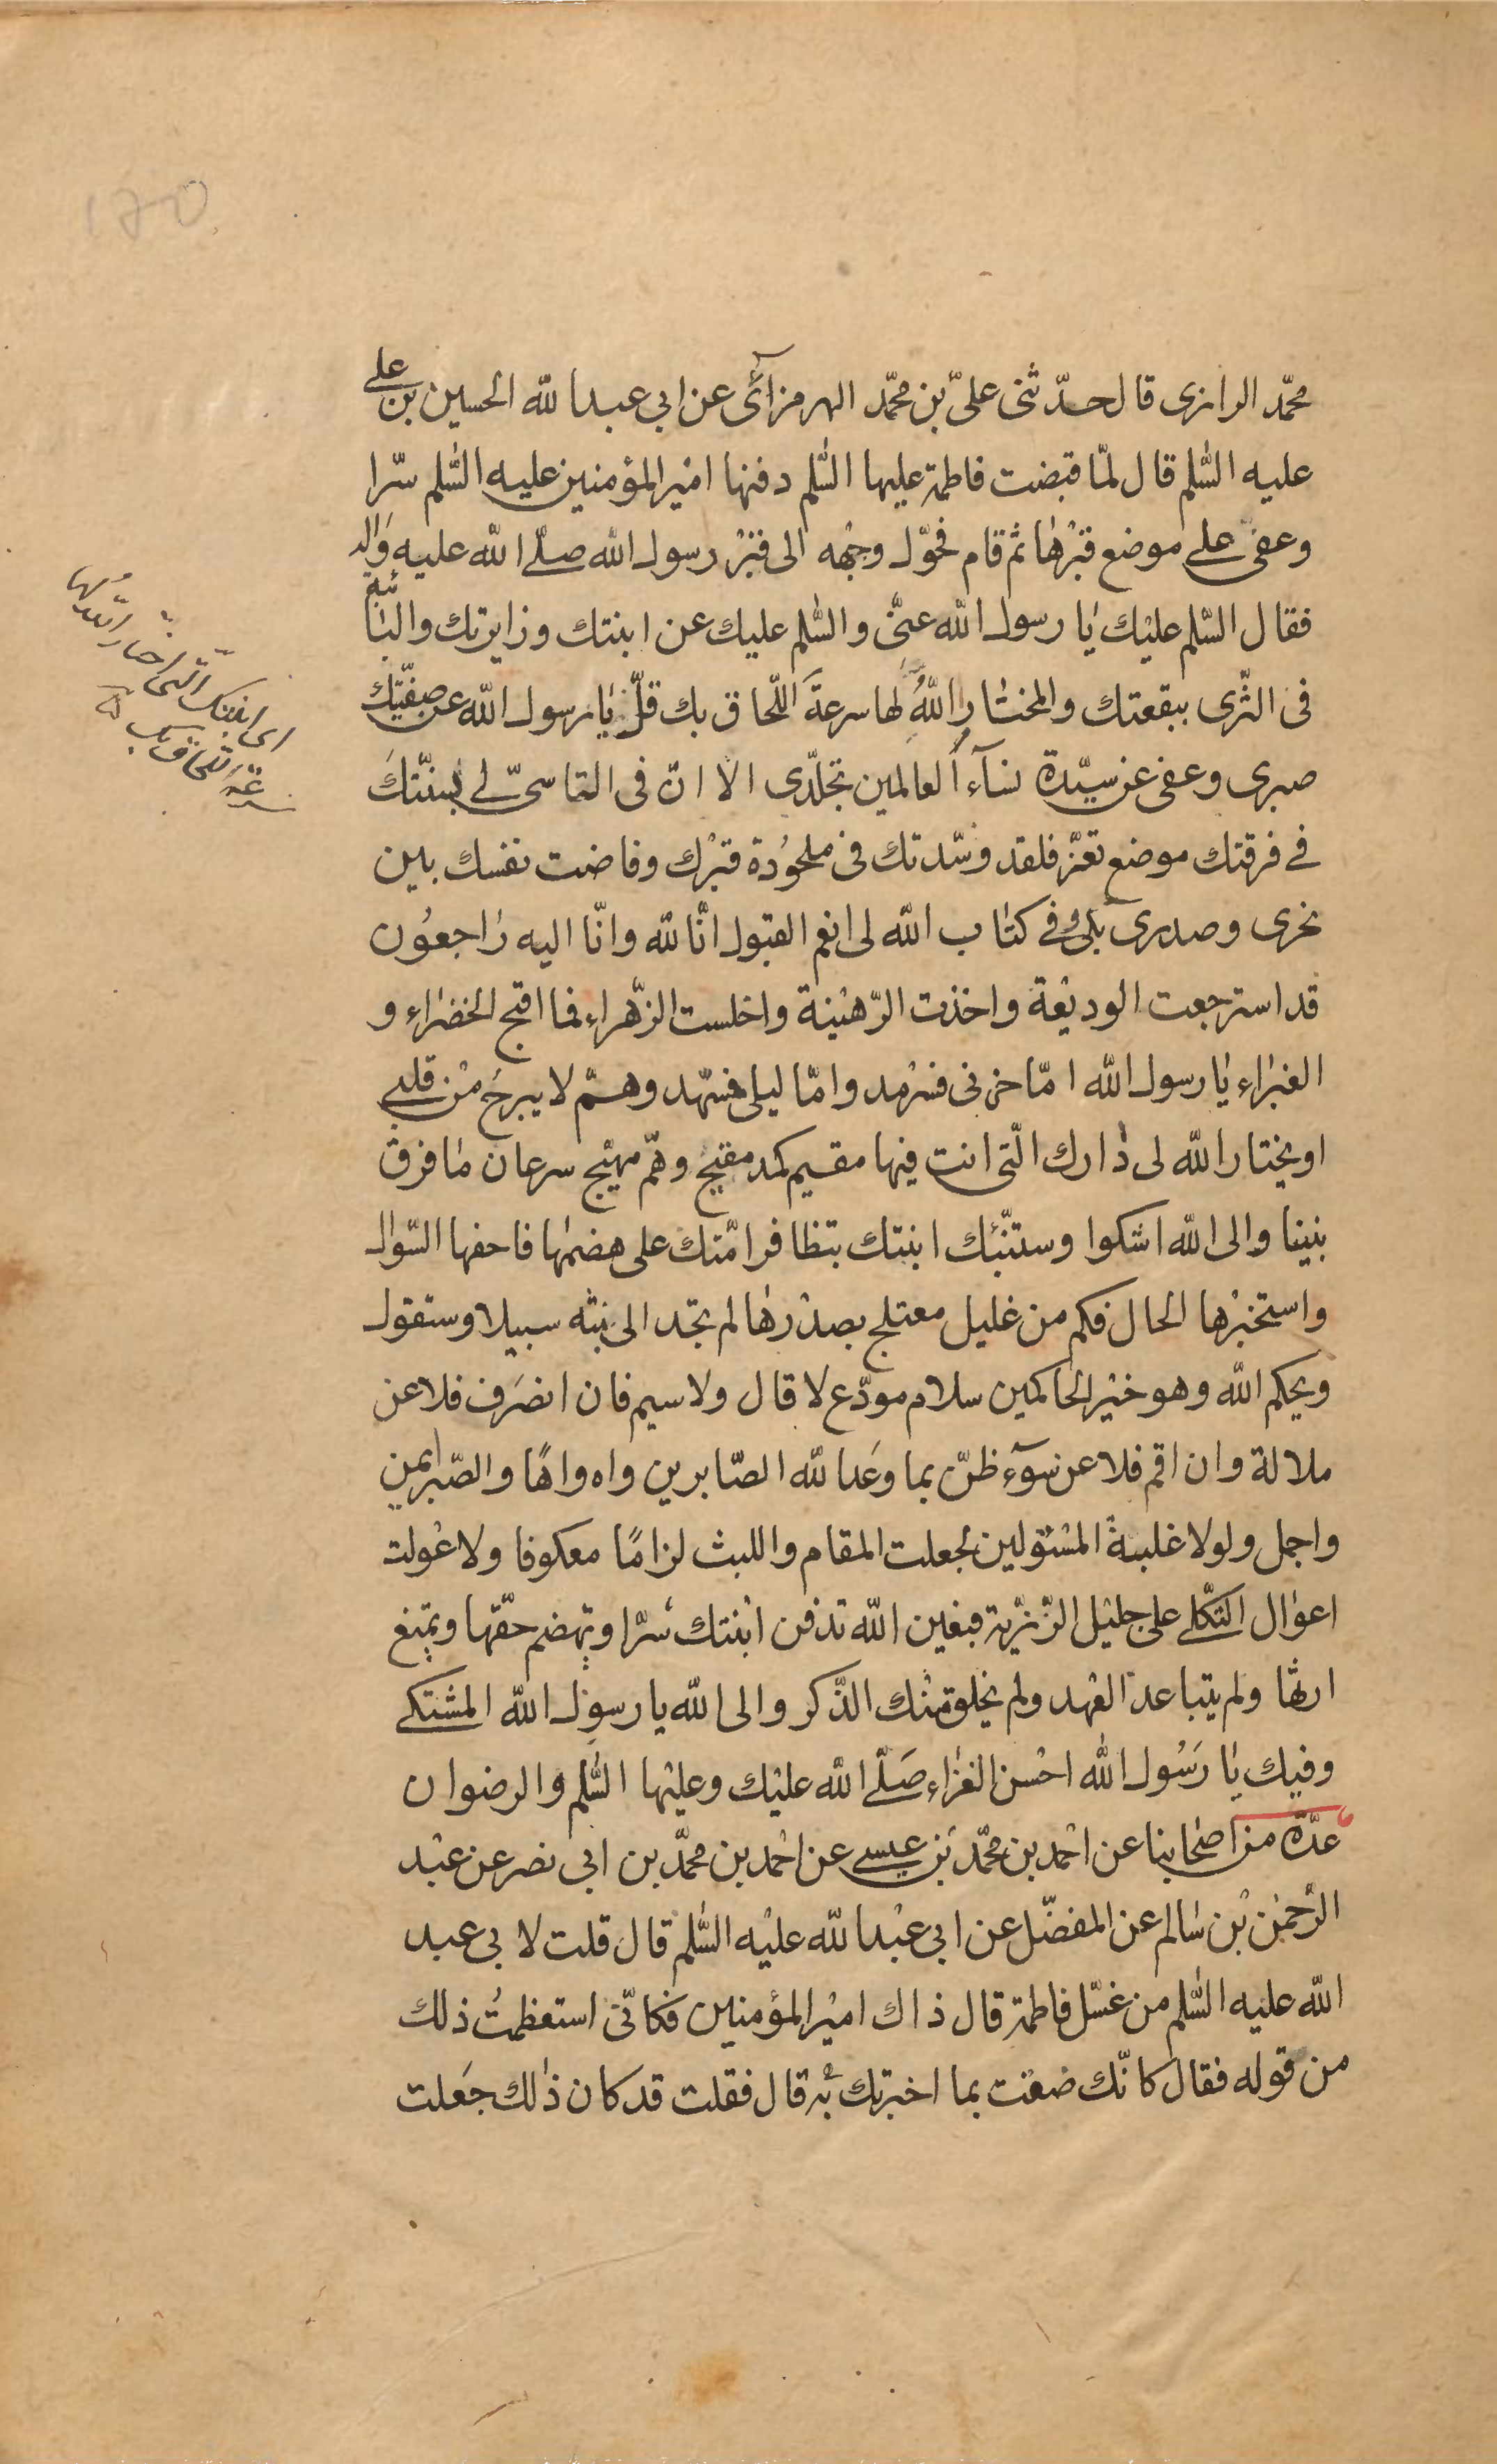 محمّد الرازى قال حدّثنى علىّ بن محمّد الهرمزآئى عن ابى عبدالله الحسين بن على
عليه السّلم قال لمّا قبضت فاطمة عليها السّلم دفنها امير المؤمنين عليه السّلم سرّا
وعفى على موضع قبرها ثم قام فحوّل وجهه الى قبر رسول الله صلّى الله عليه واله
فقال السّلم عليك يا رسول الله عنّى والسّلم عليك عن ابنتك وزايرتك والبائتة
فى الثّرى ببقعتك والمختار الله لها سرعة اللّحاق بك قلّ يا رسول الله عن صفيّتك
صبرى وعفى عن سيّدة نسآء العالمين تجلّدى الا انّ فى التاسىّ لى بسنّتك
فى فرقتك موضع تعزّ فلقد وسّدتك فى ملحودة قبرك وفاضت نفسك بين
نحرى وصدرى بلى وفى كتاب الله لى انعم القبول انّا لله وانّا اليه راجعون
قد استرجعت الوديعة واخذت الرّهينة واخلست الزّهراء فما اقبح الخضراء و
الغبراء يا رسول الله امّا حزنى فسرمد وامّا ليلى فسهّد وهمّ لا يبرح من قلبى
او يختار الله لى دارك الّتى انت فيها مقيم كمد مقيح وهمّ مهيّج سرعان ما فرق
بيننا والى الله اشكوا وستنبّئك ابنتك بتظافر امّتك على هضمها فاحفها السّؤال
واستخبرها الحال فكم من غليل معتلج بصدرها لم تجد الى بثّه سبيلا وستقول
ويحكم الله وهو خير الحاكمين سلام مودّع لا قال ولا سيم فان انصرف فلا عن
ملالة وان اقم فلا عن سوء ظنّ بما وعد الله الصّابرين واه واها والصّبر ايمن
واجمل ولولا غلبة المستولين لجعلت المقام واللبث لزاما معكوفا ولاعولت
اعوال الثّكلى على جليل الرّزيّة فبعين الله تدفن ابنتك سرّا وتهضم حقّها وتمنع
ارثها ولم يتباعد العهد ولم يخلق منك الذّكر والى الله يا رسول الله المشتكى
وفيك يا رسول الله احسن العزاء صلّى الله عليك وعليها السّلم والرضوان
عدّة من اصحابنا عن احمد بن محمّد بن عيسى عن احمد بن محمّد بن ابى نصر عن عبد
الرّحمن بن سالم عن المفضّل عن ابى عبدالله عليه السّلم قال قلت لابى عبد
الله عليه السّلم من غسّل فاطمة قال ذاك امير المؤمنين فكانّى استعظمت ذلك
من قوله فقال كانّك ضقت بما اخبرتك به قال فقلت قد كان ذلك جعلت
اى ابنتك الّتى اختار الله لها
سرعة اللحاق بك